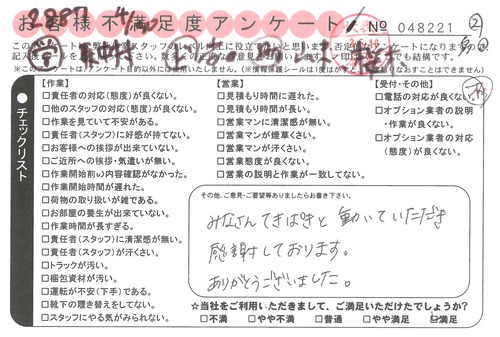 2887
お客様不満足度アンケート
No 048221
②
チェックリスト
【作業】
□責任者の対応(態度)が良くない。
□他のスタッフの対応(態度)が良くない。
□作業を見ていて不安がある。
□責任者(スタッフ)に好感が持てない。
□お客様への挨拶が出来ていない。
□ご近所への挨拶・気遣いが無い。
□作業開始前の内容確認がなかった。
□作業開始時間が遅れた。
□荷物の取り扱いが雑である。
□お部屋の養生が出来ていない。
□作業時間が長すぎる。
□責任者(スタッフ)に清潔感が無い。
□責任者(スタッフ)が汗くさい。
□トラックが汚い。
□梱包資材が汚い。
□運転が不安(下手)である。
□靴下の履き替えをしてない。
□スタッフにやる気がみられない。
【営業】
□見積もり時間に遅れた。
□見積もり時間が長い。
□営業マンに清潔感が無い。
□営業マンが煙草くさい。
□営業マンが汗くさい。
□営業態度が良くない。
□営業の説明と作業が一致してない。
【受付・その他】
□電話の対応が良くない。
□オプション業者の説明
・作業が良くない。
□オプション業者の対応
(態度)が良くない。
その他、ご意見・ご要望等ありましたらお書き下さい。
みなさんてきぱきと動いていただき
感謝しております。
ありがとうございました。
☆当社をご利用いただきまして、ご満足いただけたでしょうか?
□不満 □やや不満 □普通 □やや満足 ☑満足